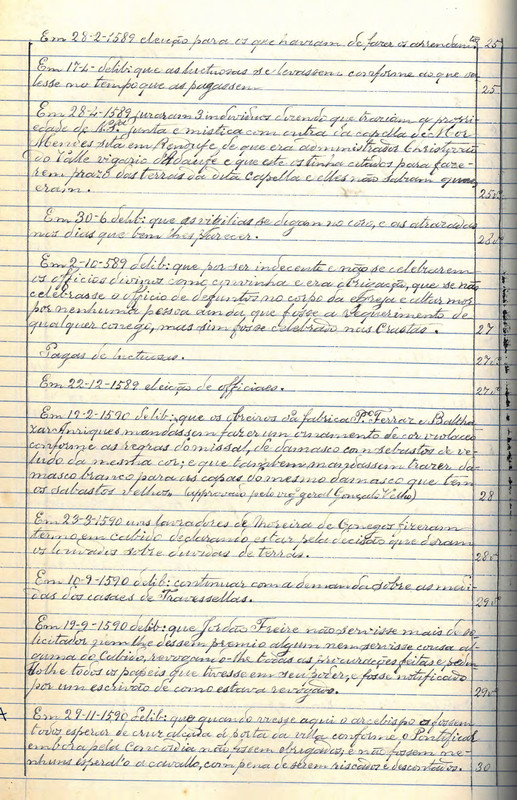 Em 28-2-1589 eleição para os que haviam de fazer os arrendam.tos 25
Em 17-4- delib: que as luctuosas se levassem conforme ao que va-
lesse no tempo que as pagassem. 25
Em 28-4-1589 juraram 3 individuos dizendo que trariam a propri-
edade de junta e mistica com outra da capella de N.
Mendes sita em Rendufe, de que era administrador Christovão
do Valle vigario d'Adaufe e que este os tinha citados para faze-
rem prazo das terras da dita capella e elles não sabiam quaes
eram. 25v.
Em 30-6 delib: que as vigilias se digam no coro, e as atrazadas
nos dias que bem lhes parecer. 26v.
Em 2-10-589 delib: que por ser indecente e não se celebrarem
os officios divinos como convinha e era obrigação, que se não
celebrasse o officio de defuntos no corpo da Igreja e altar mor
por nenhuma pessoa ainda, que fosse a requerimento de
qualquer conego, mas sim fosse celebrado nas Crastas. 27
Pagas de luctuosas. 27v.
Em 22-12-1589 eleição de officiaes. 27v.
Em 17-2-1590 delib: que os obreiros da fabrica P.o Ferraz e Baltha-
zar Anriques mandassem fazer um ornamento de cor violaceo
conforme as regras do missal, de damasco com sebastos de ve-
ludo da mesma cor; e que tambem mandassem trazer da-
masco branco para as capas do mesmo damasco que tem
os sabastos velhos. (approvado pelo vig. geral Gonçalo Velho) 28
Em 23-3-1590 uns lavradores de Moreira de Conegos fizeram
termo em cabido declarando estar pela decisão que deram
os louvados sobre duvidas de terras. 28v
Em 10-9-1590 delib: continuar com a demanda sobre as
dos casaes de Travessellas. 29v.
Em 19-9-1590 delib: que Jordão Freire não servisse mais de so-
licitador nem lhe dessem premio algum nem servisse cousa al-
guma do Cabido, revogando-lhe todas as procurações feitas e
todos os papeis que tivesse em seu poder, e fosse notificado
por um escripto de como estava revogado. 29v.
Em 29-11-1590 Delib: que quando viesse aqui o arcebispo o fossem
todos esperar de cruz alçada á porta da villa conforme o Pontifical
embora pela Concordia não fossem obrigados; e não fossem ne-
nhuns esperal-o a cavallo, com pena de serem riscados e descontados. 30